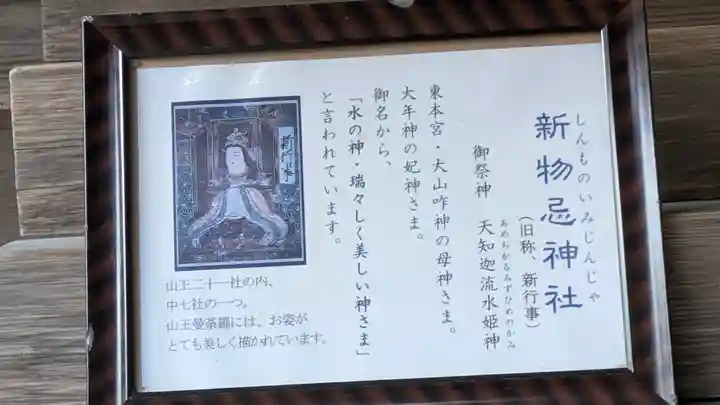 しんものいみじんじゃ
新物忌神社
(旧称、新行事)
御祭神　天知迦流水姫神
あめちかるみずひめのかみ
東本宮・大山咋神の母神さま。
大年神の妃神さま。
御名から、
「水の神・瑞々しく美しい神さま」
と言われています。
新行事
山王二十一社の内、
中七社の一つ。
山王曼荼羅には、お姿が
とても美しく描かれています。